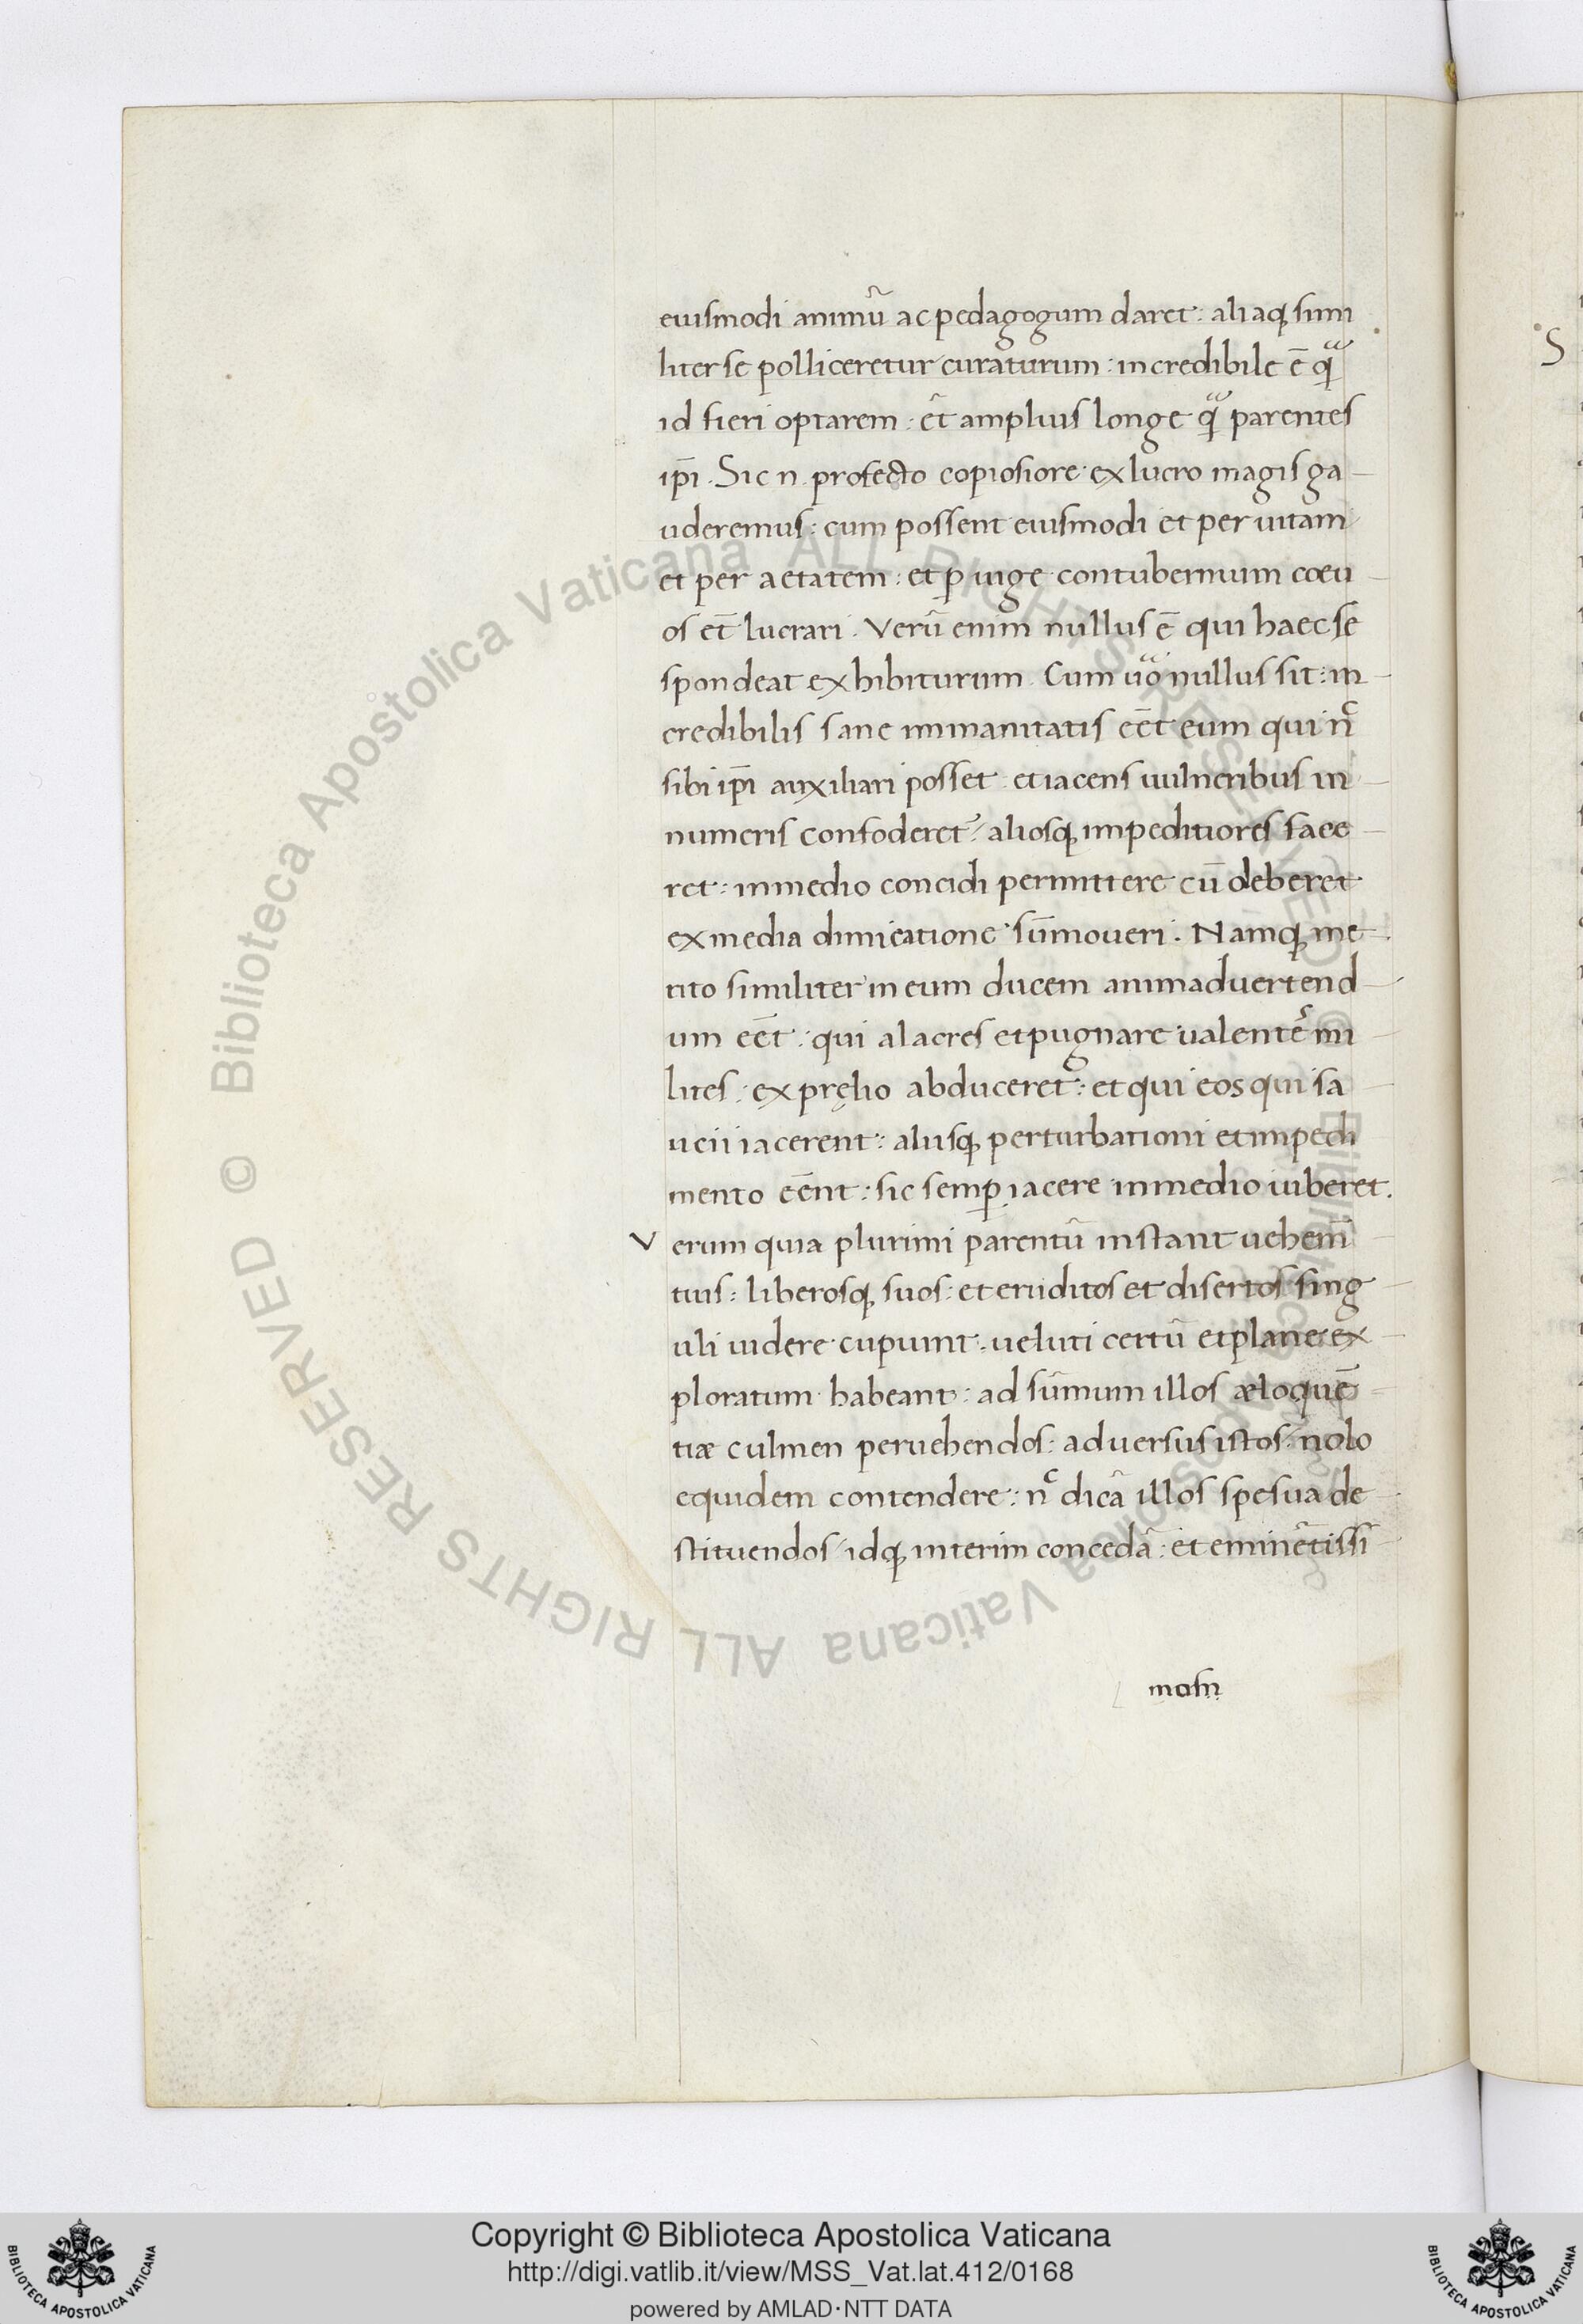 eiusmodi animū ac pedagogum daret: aliaq; simi
liter se polliceretur curaturum: incredibile ē qͣ
id fieri optarem: et̄ amplius longe qͣ parentes
ip̄i. Sic n. profecto copiosiore ex lucro magis ga
uderemus: cum possent eiusmodi et per uitam
et per aetatem: et ꝑ iuge contubernium coeu
os et̄ lucrari. Verū enim nullus ē qui haec se
spondeat exhibiturum. Cum uͦo nullus sit: in
credibilis sane immanitatis eēt eum qui nͨ
sibi ip̄i auxiliari posset et iacens uulneribus in
numeris confoderet᷑: aliosq; impeditiores face
ret: in medio concidi permittere cū deberet
ex media dimicatione sūmoueri. Namq; me
rito similiter in eum ducem animaduertend
um eēt: qui alacres et pugnare ualentes mi
lites: ex pręlio abduceret: et qui eos qui sa
ucii iacerent: aliisq; perturbationi et impedi
mento eēnt: sic semꝑ iacere in medio iuberet.
Verum quia plurimi parentū instant uehem̄
tius: liberosq; suos: et eruditos et disertos sing
uli uidere cupiunt: ueluti certū et plane ex
ploratum habeant: ad sūmum illos æloquē
tiæ culmen peruehendos: aduersus istos: nolo
equidem contendere: nͨ dicā illos spe sua de
stituendos: idq; interim concedā: et eminētissi
mosin
Copyright © Biblioteca Apostolica Vaticana
http://digi.vatlib.it/view/MSS_Vat.lat.412/0168
powered by AMLAD·NTT DATA
BIBLIOTECA APOSTOLICA VATICANA
BIBLIOTECA APOSTOLICA VATICANA
© Biblioteca Apostolica Vaticana ALL RIGHTS RESERVED © Biblioteca Apostolica Vaticana ALL RIGHTS RESERVED
S